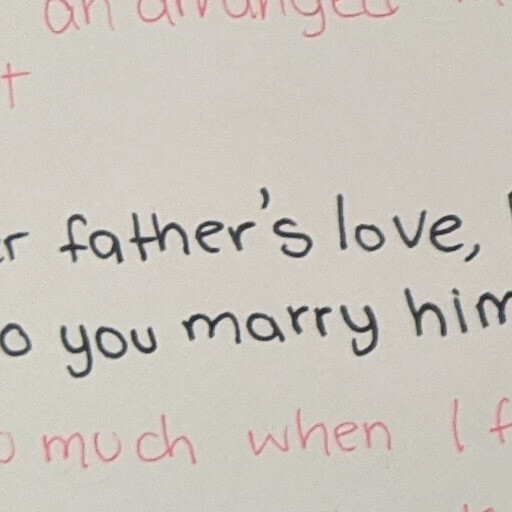 an arranged
t
r father's love,
o you marry him
o much when I f